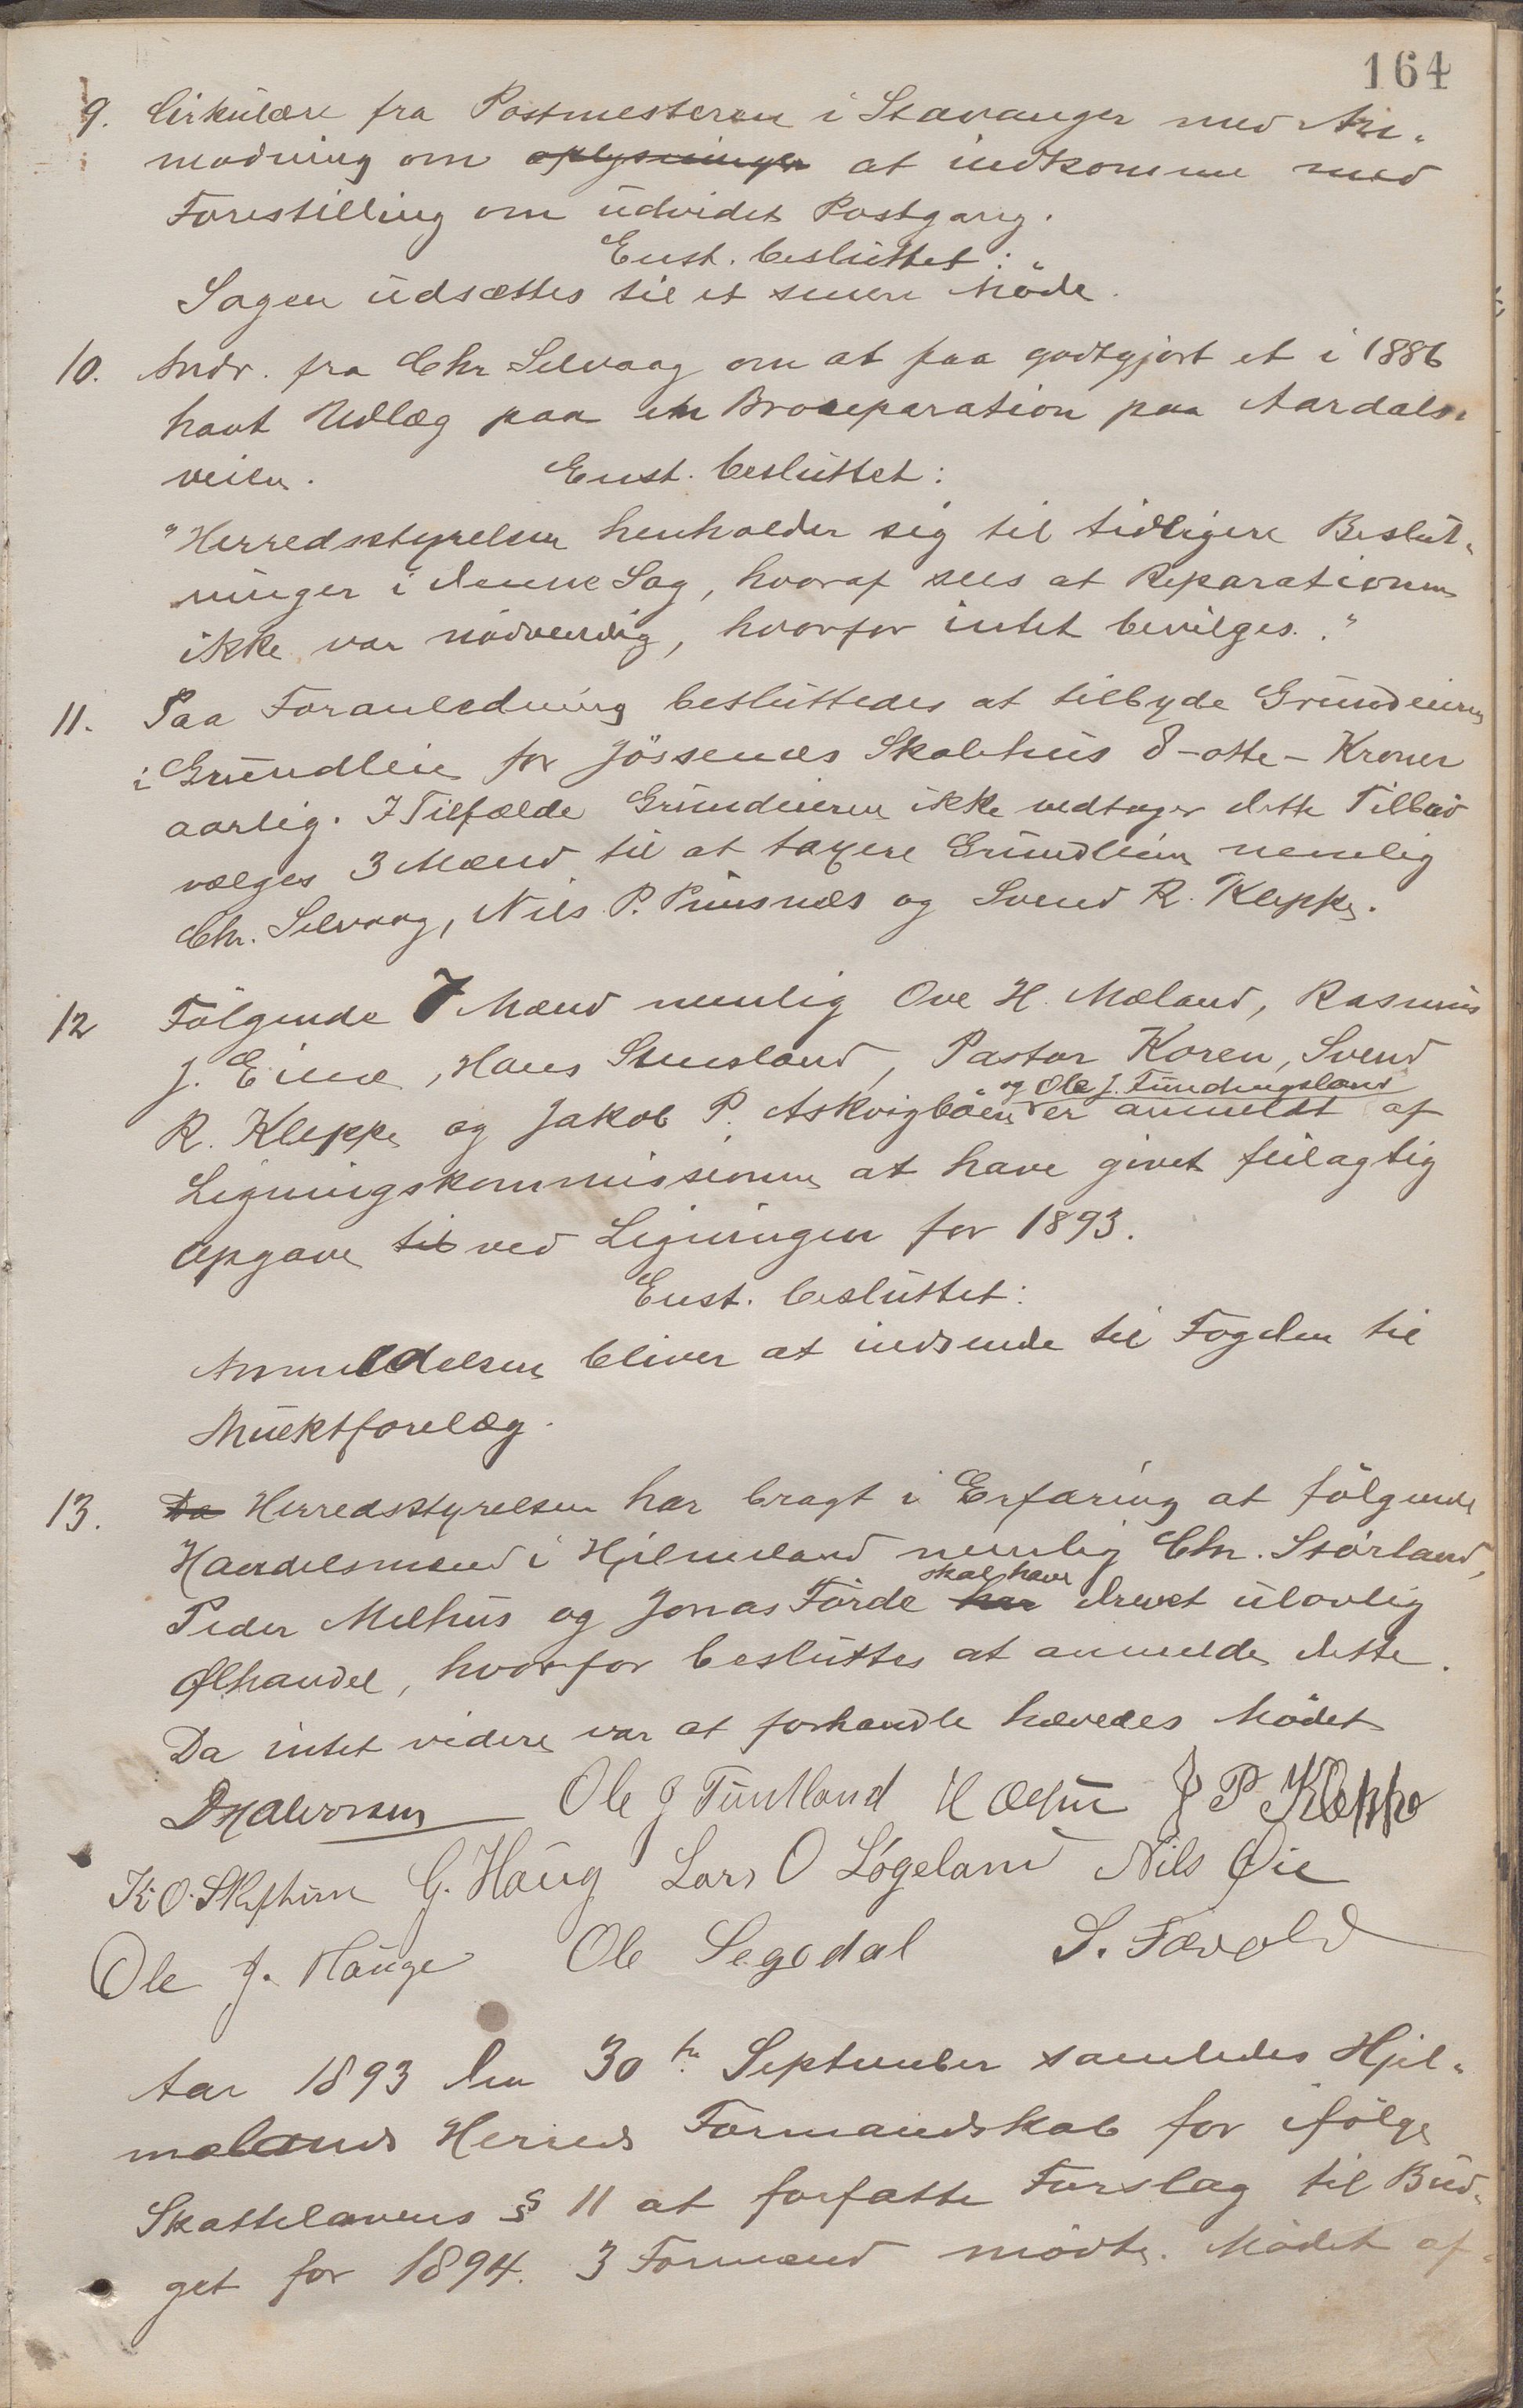 164
9. Cirkulære fra Postmesteren i Stavanger med An-
modning om oplysninger at indkomme med
Forestilling om udvidet Postgang.
Enst. besluttet:
Sagen udsættes til et senere Møde.
10. Andr. fra Chr Selvaag om at faa godtgjort et i 1886
havt Udlæg paa en Broreparation paa Aardals-
veien. Enst. besluttet:
"Herredsstyrelsen henholder sig til tidligere Beslut-
ninger i denne Sag, hvoraf sees at Reparationen
ikke var nødvendig, hvorfor intet bevilges."
11. Paa Foranledning besluttedes at tilbyde Grundeieren
i Grundleie for Jøssenæs Skolehus 8 - otte - Kroner
aarlig. I Tilfælde Grundeieren ikke vedtager dette Tilbud
vælges 3 Mænd til at taxere Grundleien nemlig
Chr. Selvaag, Nils P. Pundsnes og Svend R. Kleppe.
12 Følgende 7 Mænd nemlig Ove H. Mæland, Rasmus
J. Eime, Hans Steinsland, Pastor Koren, Svend
og Ole J. Tundingsland
R. Kleppe og Jakob P. Askvigbøen er anmeldt af
Ligningskommissionen at have givet feilagtig
Opgave til ved Ligningen for 1893.
Enst. besluttet:
Anmeldelsen bliver at indsende til Fogden til
Mulktforelæg.
13. Da Herredsstyrelsen har bragt i Erfaring at følgende
Handelsmænd i Hjelmeland nemlig Chr. Størland,
skal have
Peder Melhus og Jonas Førde har drevet ulovlig
Ølhandel, hvorfor besluttes at anmelde dette.
Da intet videre var at forhandle hævedes Mødet
D Halvorsen Ole J Tuntland J P Kleppe
K. O. Skiftun G. Haug Lars O Løgeland Nils Øie
Ole J. Hauge Ole Segedal S. Fævold
Aar 1893 den 30te September samledes Hjel-
melands Herreds Formandskab for ifølge
Skattelovens § 11 at forfatte Forslag til Bud-
get for 1894. 3 Formænd mødte. Mødet af-